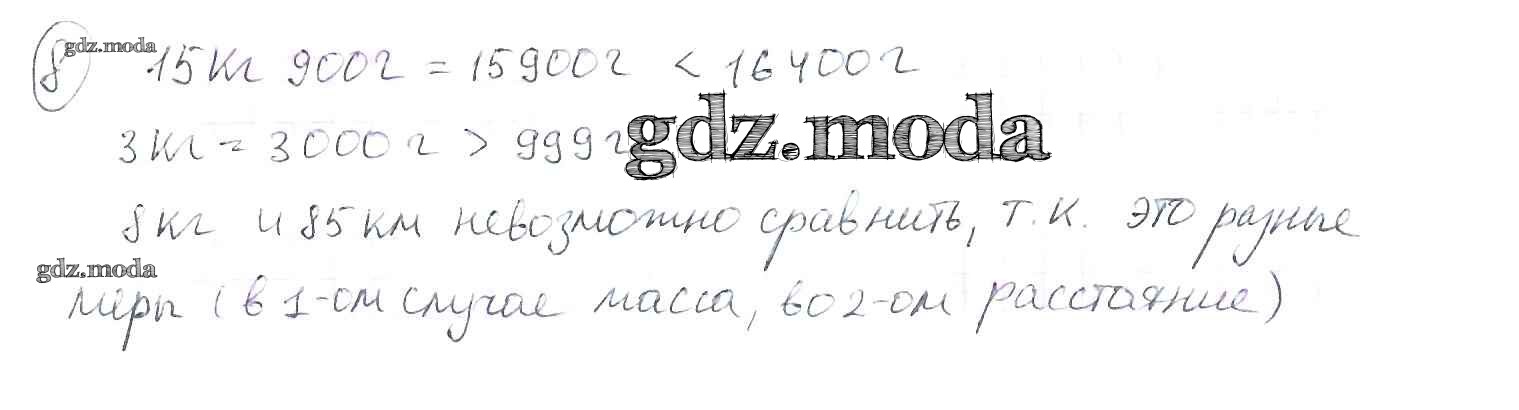 8 gdz.moda 15 кг 900 г = 15900 г < 16400 г
3 кг = 3000 г > 999 г gdz.moda
8 кг и 85 км невозможно сравнить, т.к. это разные
gdz.moda
меры (в 1-ом случае масса, во 2-ом расстояние)